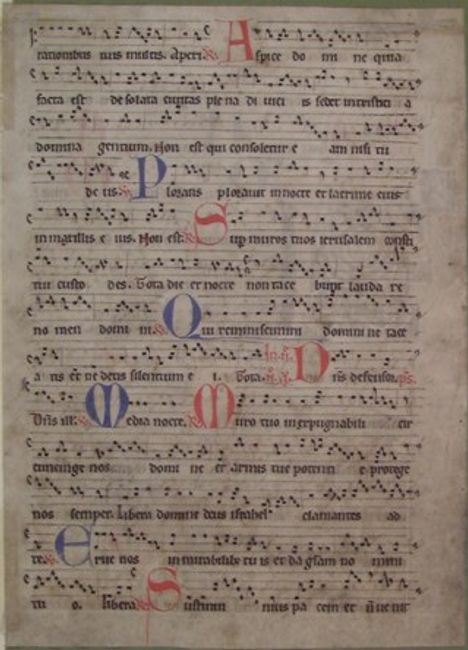 rationibus tuis multis. Aperi. Aspice do mi ne quia
facta est de solata civitas ple na di viti is sedet in tristici a
domina gentium. Non est qui consoletur e am nisi tu
de us. Plorans ploravit in nocte et lacrime eius
in maxillis e ius. Non est. Sup muros tuos ierusalem consti
tui custo des. Tota die et nocte non tace bunt lauda re
no men domi ni. Qui reminiscimini domini ne tace
a tis et ne detis silentium e i. Tota. Dns defensor. ps.
Dns ill. Media nocte. Muro tuo inexpugnabili cir
cumcinge nos domi ne et armis tue potenti e protege
nos semper. Libera domine deus israhel clamantes ad
te. Erue nos in mirabilibz tu is et da glam no mini
tu o. libera Sustinui mus pa cem et